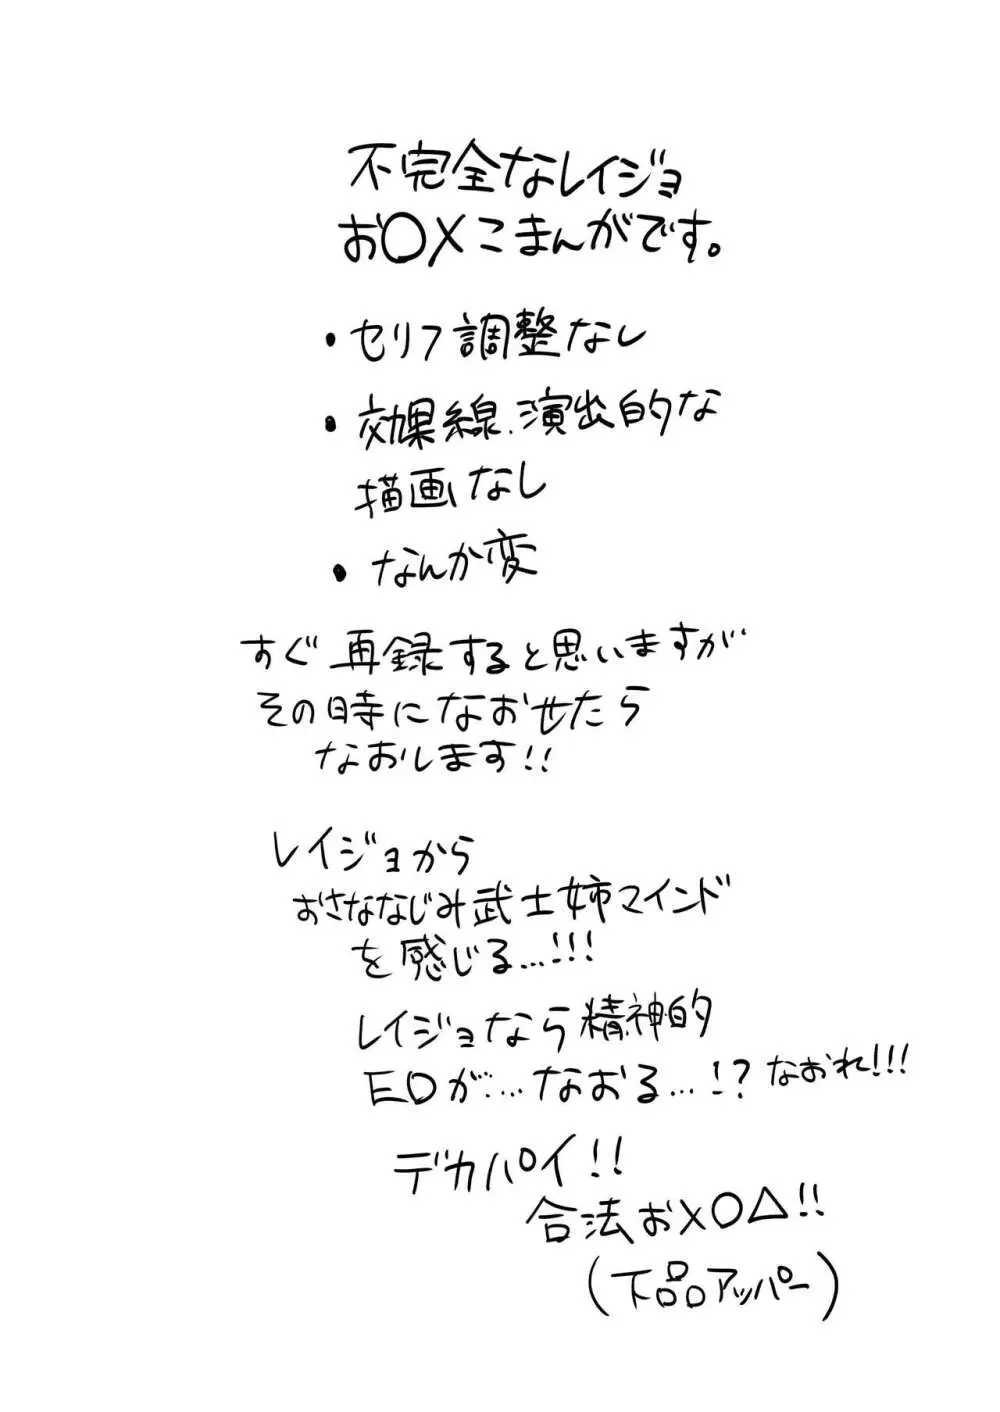 不完全なレイジョ
お〇メこまんがです。
・セリフ調整なし
・効果線、演出的な
描画なし
・なんか変
すぐ再録すると思いますが
その時になおせたら
なおします!!
レイジョから
おさななじみ武士姉マインド
を感じる…!!!
レイジョなら精神的
EDが…なおる…!? なおれ!!!
デカパイ!!
合法お×〇△!!
(下品アッパー)